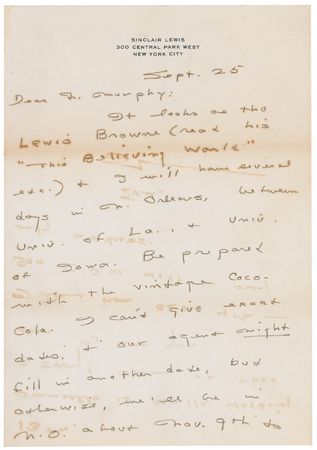 SINCLAIR LEWIS
300 CENTRAL PARK WEST
NEW YORK CITY
Sept. 25
Dear Dr. Murphy:
It looks as tho
Lewis Browne (read his
"This Believing World"
etc.) & I will have several
days in N. Orleans, between
Univ. of La., & Univ.
of Iowa. Be prepared
with the vintage Coco-
Cola. I can't give exact
dates; & our agent might
fill in another date, but
otherwise, we'll be in
N.O. about Nov. 9th to